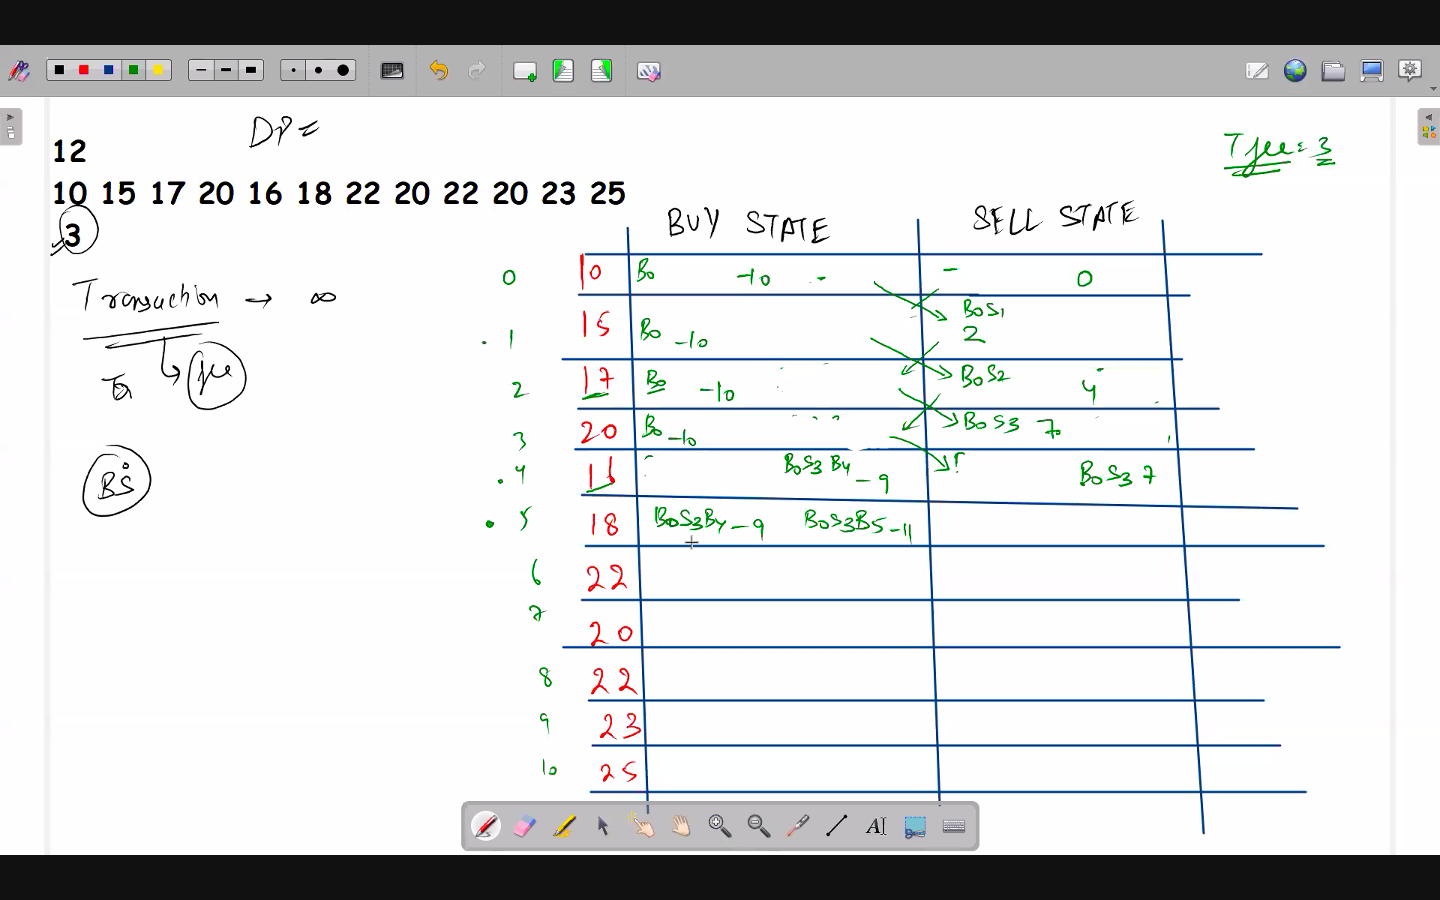 DP =
12
10 15 17 20 16 18 22 20 22 20 23 25
3
T fee = 3
BUY STATE SELL STATE
Transaction → ∞
fee
BS
0 10 B0 -10 - - 0
1 15 B0 -10 B0S1 2
2 17 B0 -10 B0S2 4
3 20 B0 -10 B0S3 7
4 16 B0S3B4 -9 B0S3 7
5 18 B0S3B4 -9 B0S3B5 -11
6 22
7 20
8 22
9 23
10 25
AI